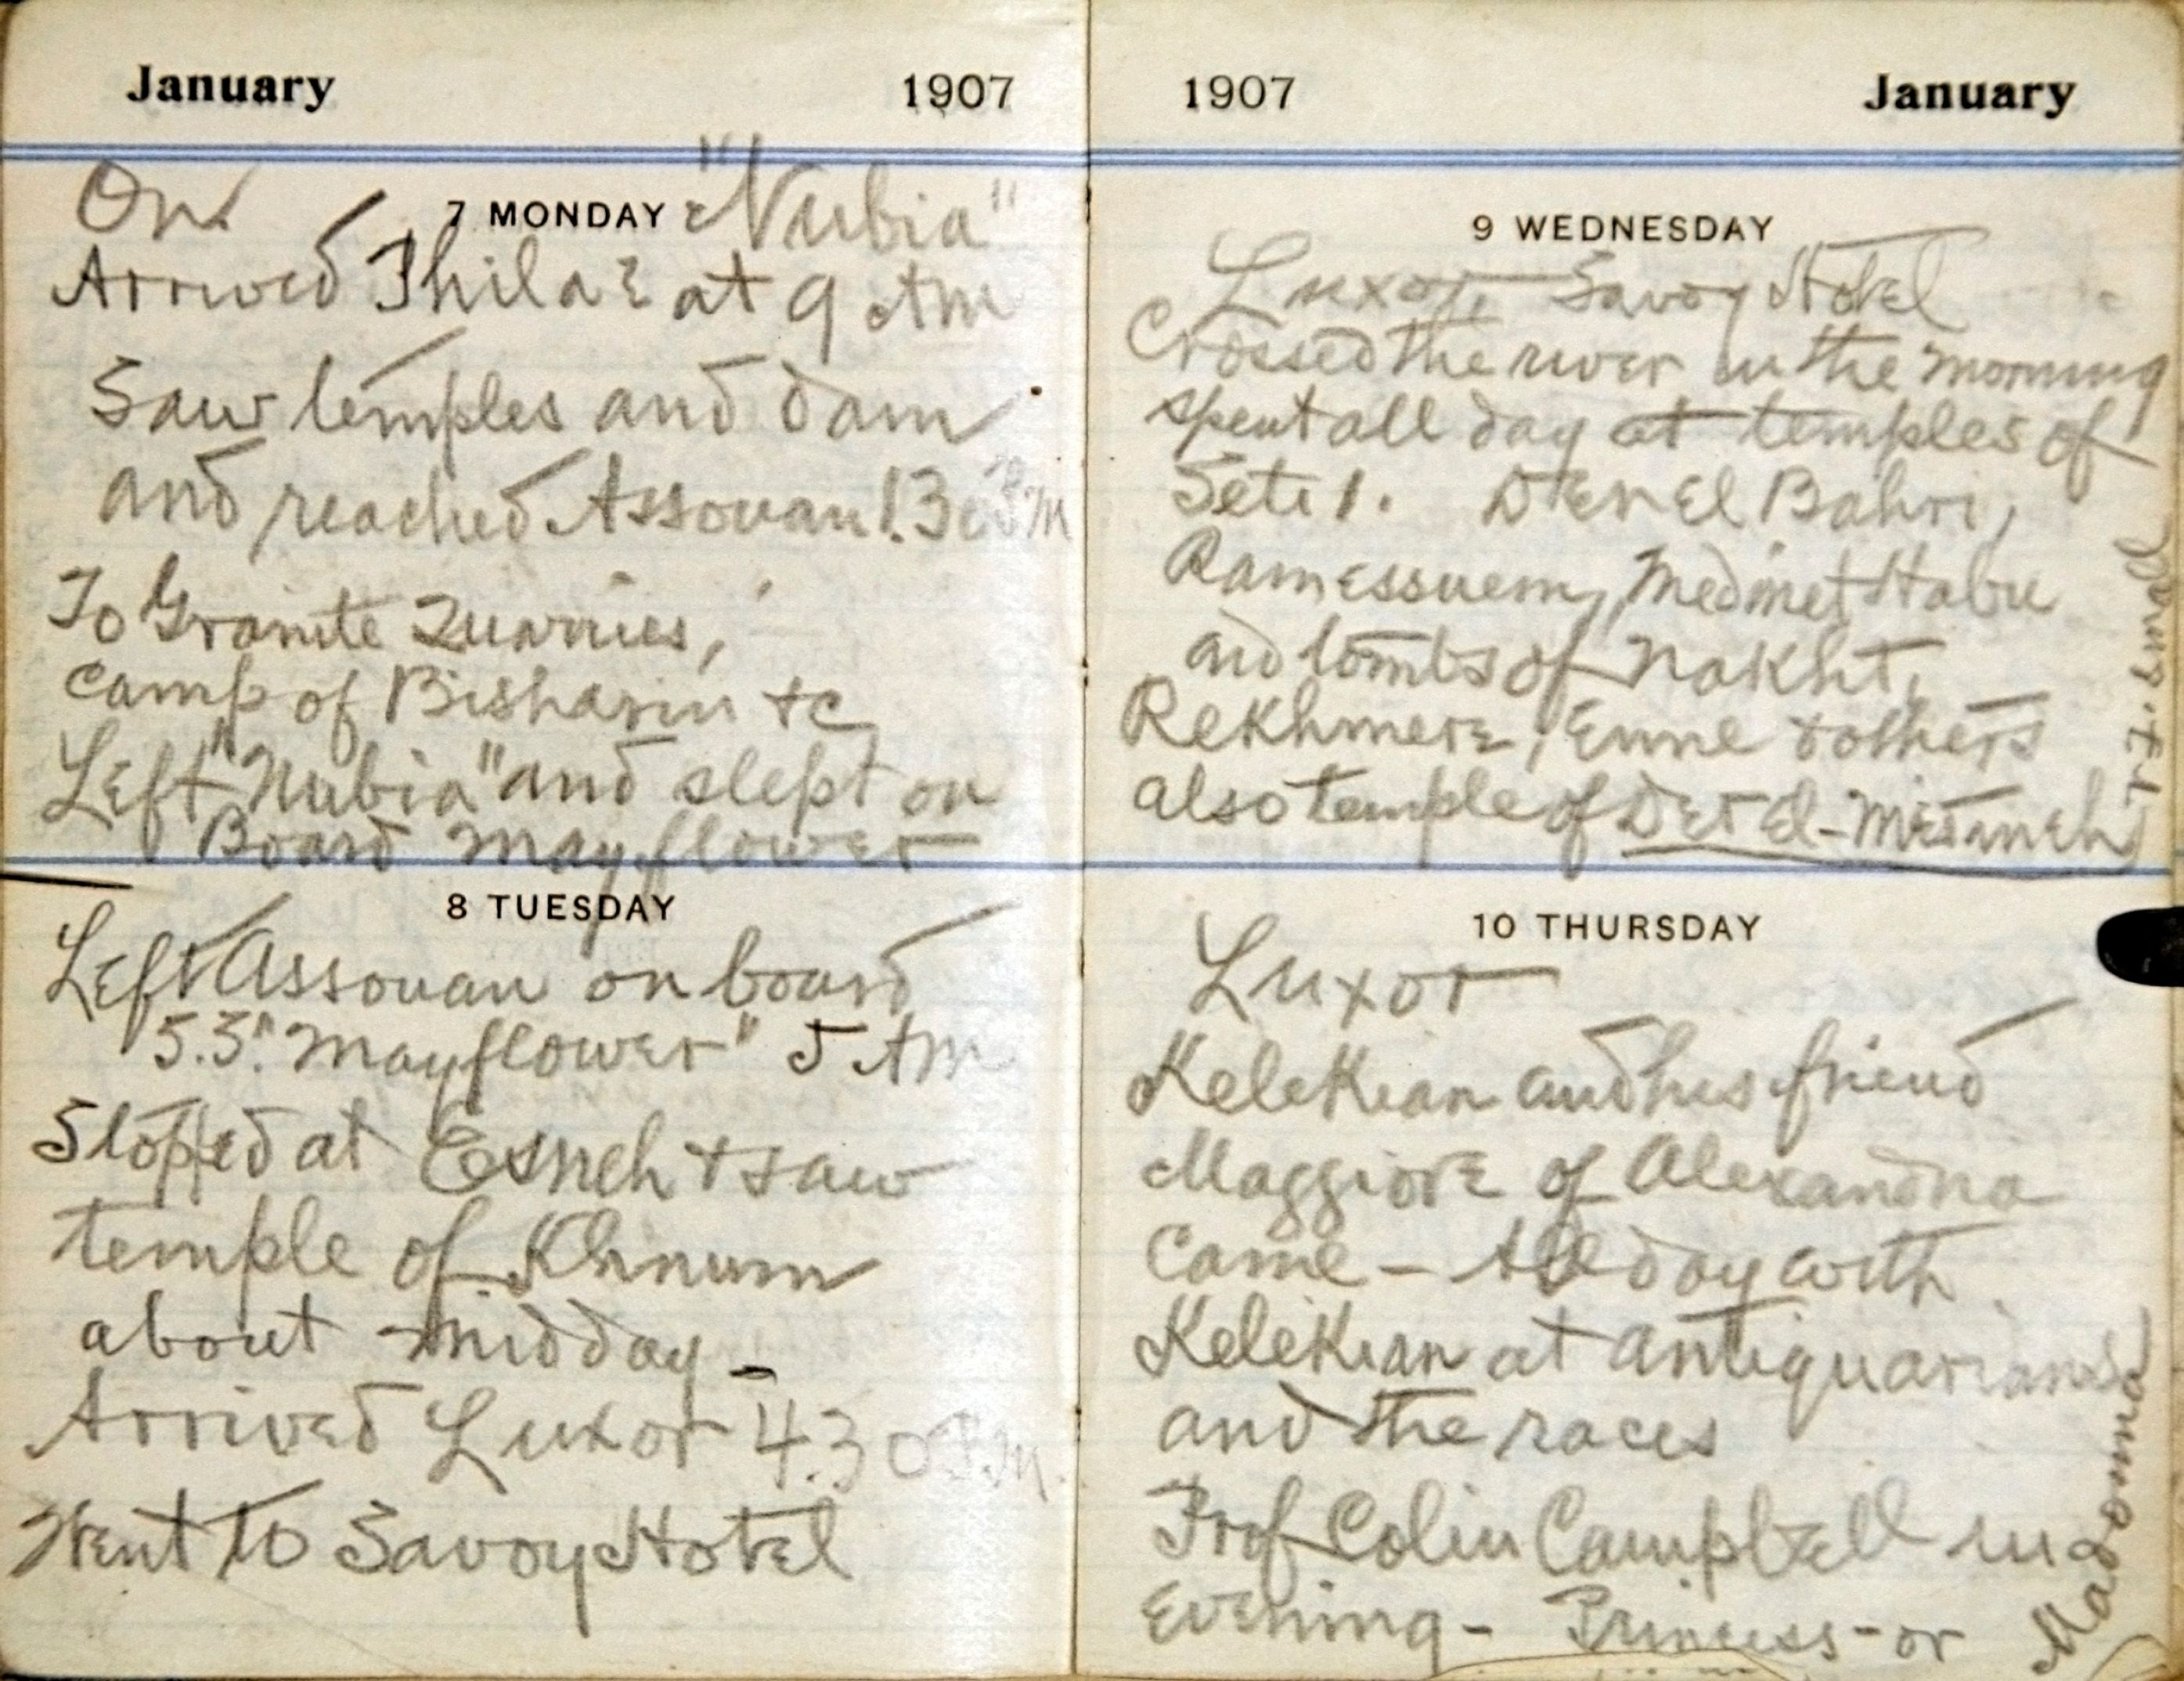 January 1907
On 7 MONDAY "Nubia"
Arrived Philae at 9 AM
Saw temples and dam
and reached Assouan 1.30 PM
To Granite Quarries,
camp of Bisharin &c
Left "Nubia" and slept on
Board Mayflower
8 TUESDAY
Left Assouan on board
S.S. "Mayflower" 5 AM
Stopped at Esneh & saw
temple of Khnum
about midday -
Arrived Luxor 4.30 P.M.
Went to Savoy Hotel
1907 January
9 WEDNESDAY
Luxor, Savoy Hotel
Crossed the river in the morning
spent all day at temples of
Sete 1. Der El Bahri,
Ramessuem, Medinet Habu
and tombs of Nakht,
Rekhmere, Enne & others
also temple of Der El-Medineh
small
10 THURSDAY
Luxor
Kelekian and his friend
Maggiore of Alexandria
Came - All day with
Kelekian at antiquarians
and the races
Prof Colin Campbell in
Evening - Princess - or
Madonna